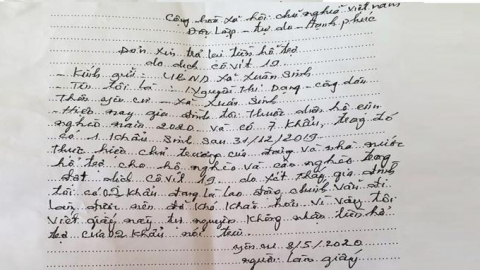 Cộng hoà xã hội chủ nghĩa Việt nam
Độc Lập - tự do - Hạnh phúc
Đơn xin trả lại tiền hỗ trợ
do dịch CôVit 19
- Kính gửi: UBND xã Xuân Sinh
- Tên tôi là: Nguyễn Thị Dang - công dân
Thôn yên cư - xã Xuân Sinh
- Hiện nay gia đình tôi thuộc diện hộ cận
nghèo năm 2020 và có 7 khẩu, trong đó
có 1 khẩu sinh sau 31/12/2019
thực hiện chủ trương của đảng và nhà nước
hỗ trợ cho hộ nghèo và cận nghèo trong
đợt dịch CôVit 19 do xét thấy gia đình
tôi có 02 khẩu đang là lao động chính vẫn đi
làm được nên đỡ khó khăn hơn vì vậy tôi
viết giấy này tự nguyện không nhận tiền hỗ
trợ của 02 khẩu nói trên.
yên cư 3/5/2020
người làm giấy